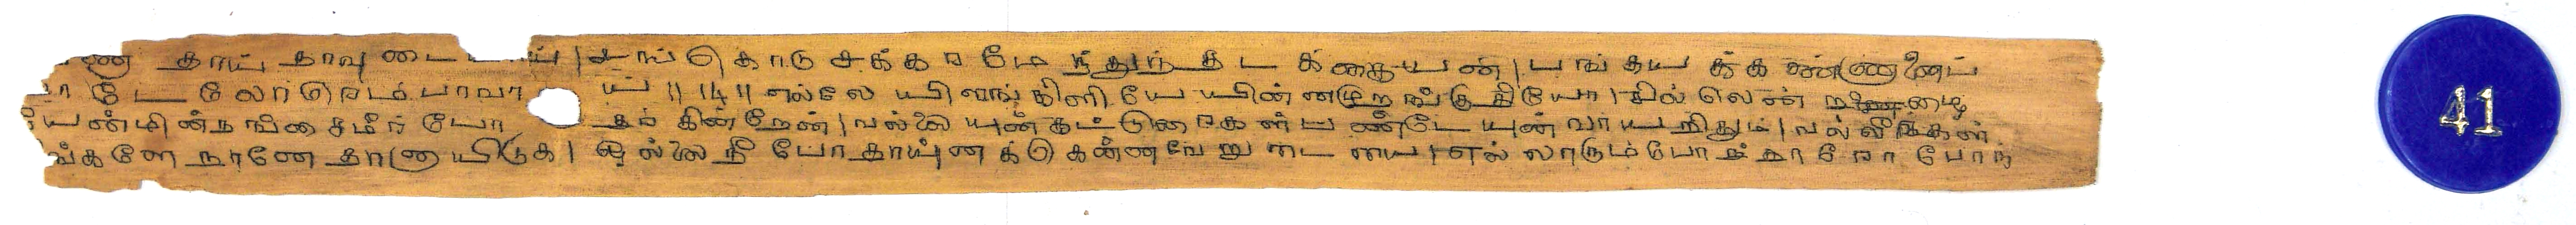 ணாதாய் நாவுடையாய் | சங்கொடு சக்கரமேந்துந் தடக்கையன் | பங்கயக்கண்ணனைப்
பாடேலோரெம்பாவாய் || ௰௪ || எல்லே யிளங்கிளியே யின்னமுறங்குதியோ | சில்லென்றழை
யேன்மின் நங்கைமீர் போதர்கின்றேன் | வல்லையுன் கட்டுரைகள் பண்டேயுன் வாயறிதும் | வல்லீர்கள்
ங்களே நானேதானாயிடுக | ஒல்லை நீ போதாய் உனக்கென்ன வேறுடையை | எல்லாரும் போந்தாரோ போந்
41